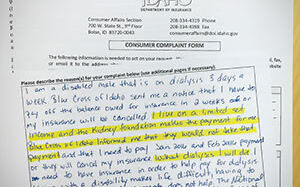 IDAHO
DEPARTMENT OF INSURANCE
Consumer Affairs Section
700 W. State St., 3rd Floor
Boise, ID 83720-0043
208-334-4319 Phone
208-334-4398 Fax
CONSUMER COMPLAINT FORM
The following information is needed to act on your
or email it to the address
Please describe the reason(s) for your complaint below (use additional pages if necessary).
I am a disabled male that is on dialysis 3 days a
week Blu Cross of Idaho sent me a notice that I have to
pay off the balance owed for insurance in 2 weeks or
my insurance will be cancelled. I live on a limited set
income and the Kidney foundation makes the payment for me
Blu Cross of Idaho informed me that they would not take that
payment and that I need to pay Jan 2016 and Feb 2016 payment
or they will cancel my insurance without dialysis I will die I
need to have insurance in order to help pay for dialysis
with a disability makes life difficult having to
not help. The National